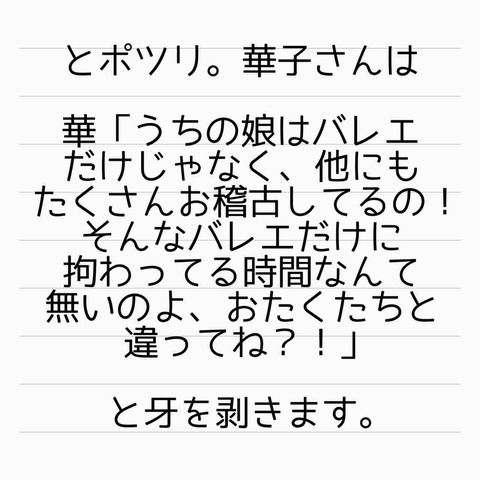 とポツリ。華子さんは
華「うちの娘はバレエ
だけじゃなく、他にも
たくさんお稽古してるの！
そんなバレエだけに
拘わってる時間なんて
無いのよ、おたくたちと
違ってね？！」
と牙を剥きます。